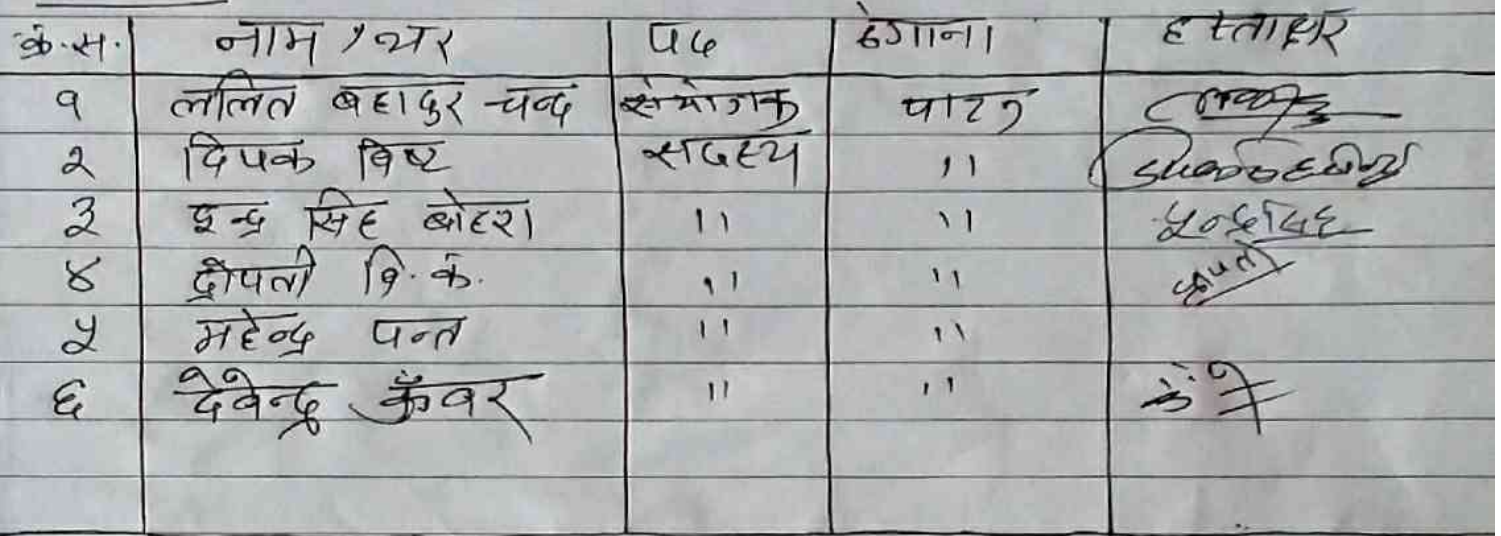 क्र.स. नाम / थर पद ठेगाना हस्ताक्षर
१ ललित बहादुर चन्द संयोजक पाटन
२ दिपक विष्ट सदस्य ''
३ इन्द्र सिह बोहरा '' '' इन्द्रसिह
४ द्रौपती वि.क. '' '' द्रोपती
५ महेन्द्र पन्त '' ''
६ देवेन्द्र कुँवर '' ''